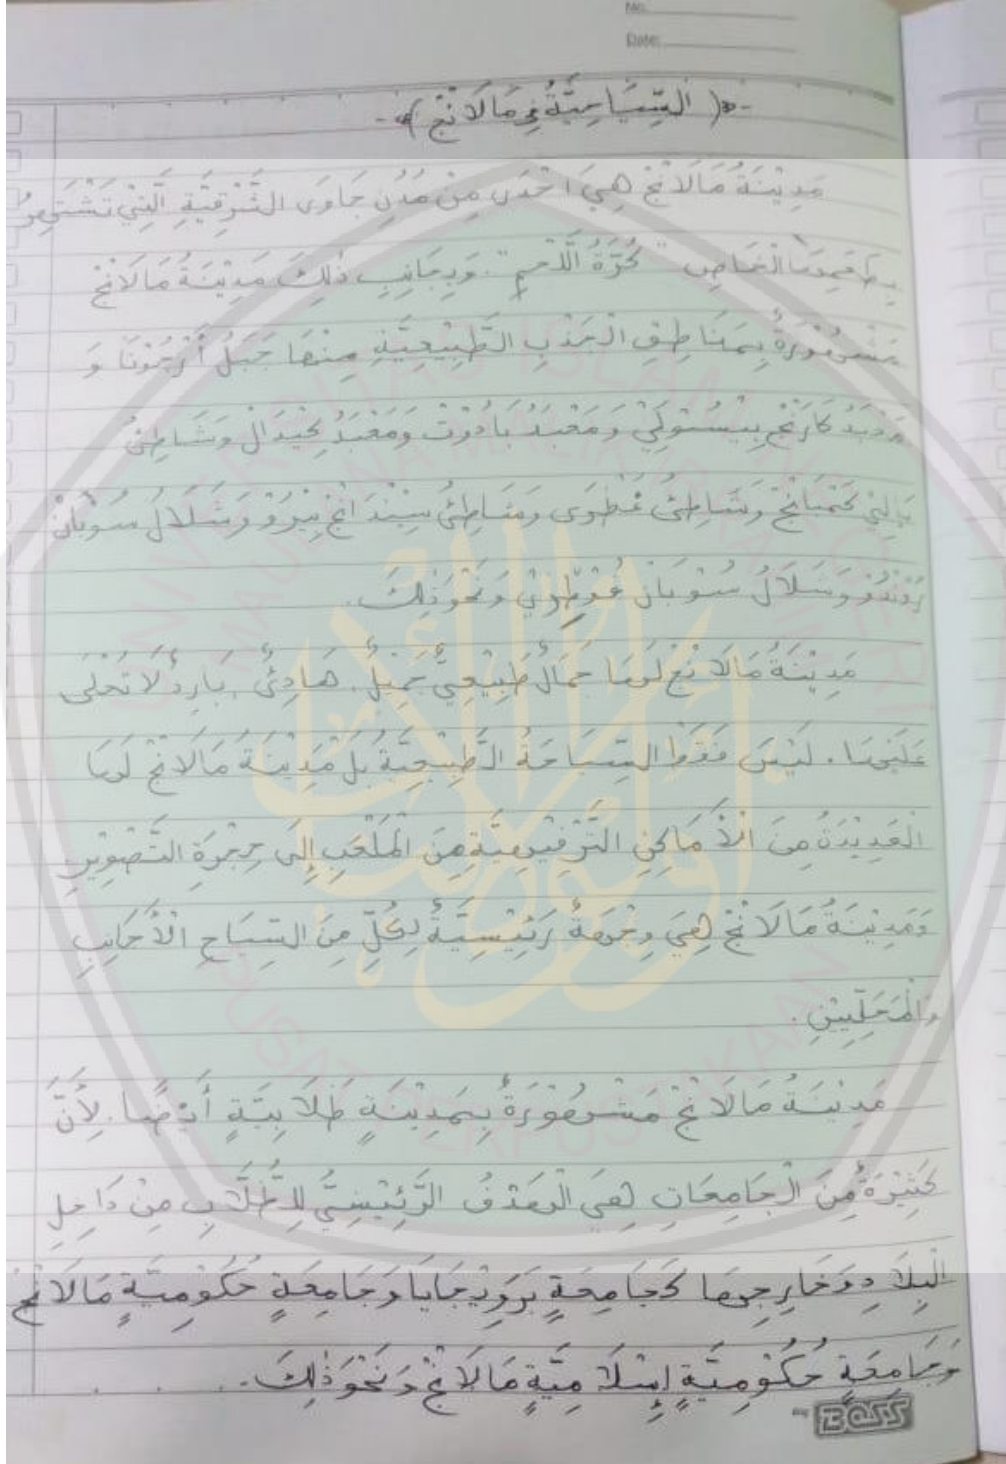 No.
Date:
-«( السِّيَاحِيَّةُ فِي مَالَانْج )»-
مَدِيْنَةُ مَالَانْجْ هِيَ اَحْدَى مِنْ مُدُنِ جَاوَى الشَّرْقِيَّةِ الَّتِيْ تَشْتَهِرُ
بِطَعِمِهَا الْخَاصِ "كُرَّةُ اللَّحْمِ". وَبِجَانِبِ ذٰلِكَ مَدِيْنَةُ مَالَانْجْ
مَشْهُوْرَةٌ بِمَنَاطِقِ الْجَذْبِ الطَّبِيْعِيَّةِ مِنْهَا جَبَلُ أَرْجُوْنَا وَ
كَارَنْج بِيْسُتُوْكِيْ وَمَعْبَدُ بَادُوْت وَمَعْبَدُ كِيْدَال وَشَاطِئُ
بَالِيْ كَمْبَانْج وَشَاطِئُ غُطْوَى وَشَاطِئُ سِيْنْدَانْج بِيْرُوْ وَشَلَالُ سُوْبَانْ
رُوْنْدُوْ وَسَلَالُ سُوْبَانْ وَنَحْوَذٰلِكَ.
مَدِيْنَةُ مَالَانْج لَهَا جَمَالٌ طَبِيْعِيٌّ جَمِيْلٌ. هَادِئٌ. بَارِدٌ لَا تَحْلَى
عَلَيْهَا. لَيْسَ فَقَطْ السِّيَاحَةُ الطَّبِيْعِيَّةُ بَلْ مَدِيْنَةُ مَالَانْجْ لَهَا
الْعَدِيْدَةُ مِنَ الْأَمَاكِنِ التَّرْفِيْهِيَّةِ مِنَ الْمَلْعَبِ إِلَى حِجْرَةِ التَّصْوِيْرِ
وَمَدِيْنَةُ مَالَانْجْ هِيَ وِجْهَةٌ رَئِيْسِيَّةٌ لِكُلِّ مِنَ السِّيَاحِ الْأَجَانِبِ
وَالْمَحَلِّيِيْنِ.
مَدِيْنَةُ مَالَانْج مَشْهُوْرَةٌ بِمَدِيْنَةٍ طَلَابِيَّةٍ أَيْضًا. لِأَنَّ
كَثِيْرَةٌ مِنَ الْجَامِعَاتِ هِيَ الْهَدْفُ الرَّئِيْسِيُّ لِلطُّلَّابِ مِنْ دَاخِلِ
الْبِلَادِ وَخَارِجِهَا كَجَامِعَةٍ بَرَوِيْجَايَا وَجَامِعَةٍ حُكُوْمِيَّةٍ مَالَانْجْ
وَجَامِعَةٍ حُكُوْمِيَّةٍ إِسْلَامِيَّةٍ مَالَانْجْ وَنَحْوَذٰلِكَ.
BOSS